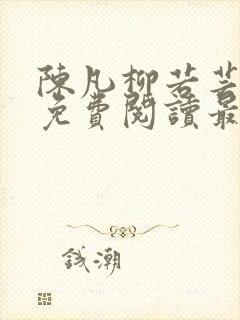 陳凡柳若芸
免費閱讀最
錢潮